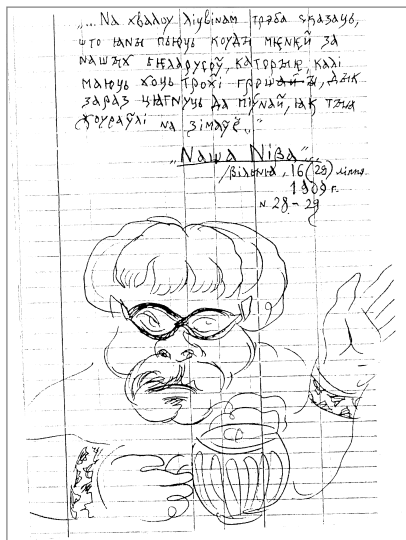 „... На хвалоу ліцвінам трэба сказаць,
што яны пьюць коуды меней за
нашых беларусоў, каторые, калі
маюць хоць трохі грошай, дык
зараз цягнуць да піўнай, як тыя
жоураўлі на зімаўё..."
„Наша Ніва"
/Вільня, 16 (29) ліпня
1909 г.
N 28-29